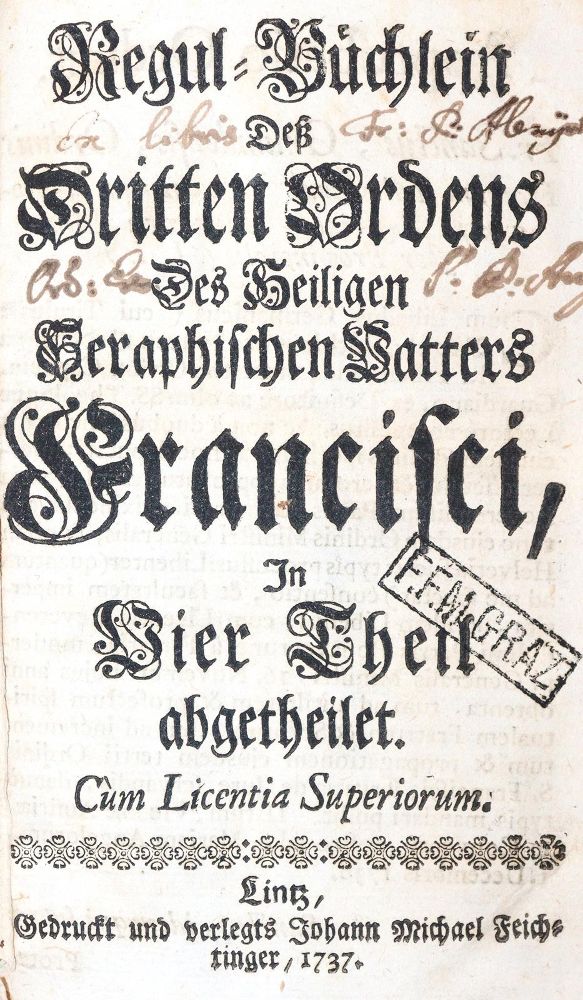 Regul-Büchlein
ex libris Deß Fr: P:
Dritten Ordens
Ord: Des Heiligen
Seraphischen Vatters
Francisci,
In
F.F.M. GRAZ
Vier Theil
abgetheilet.
Cùm Licentia Superiorum.
Lintz,
Gedruckt und verlegts Johann Michael Feich-
tinger, 1737.